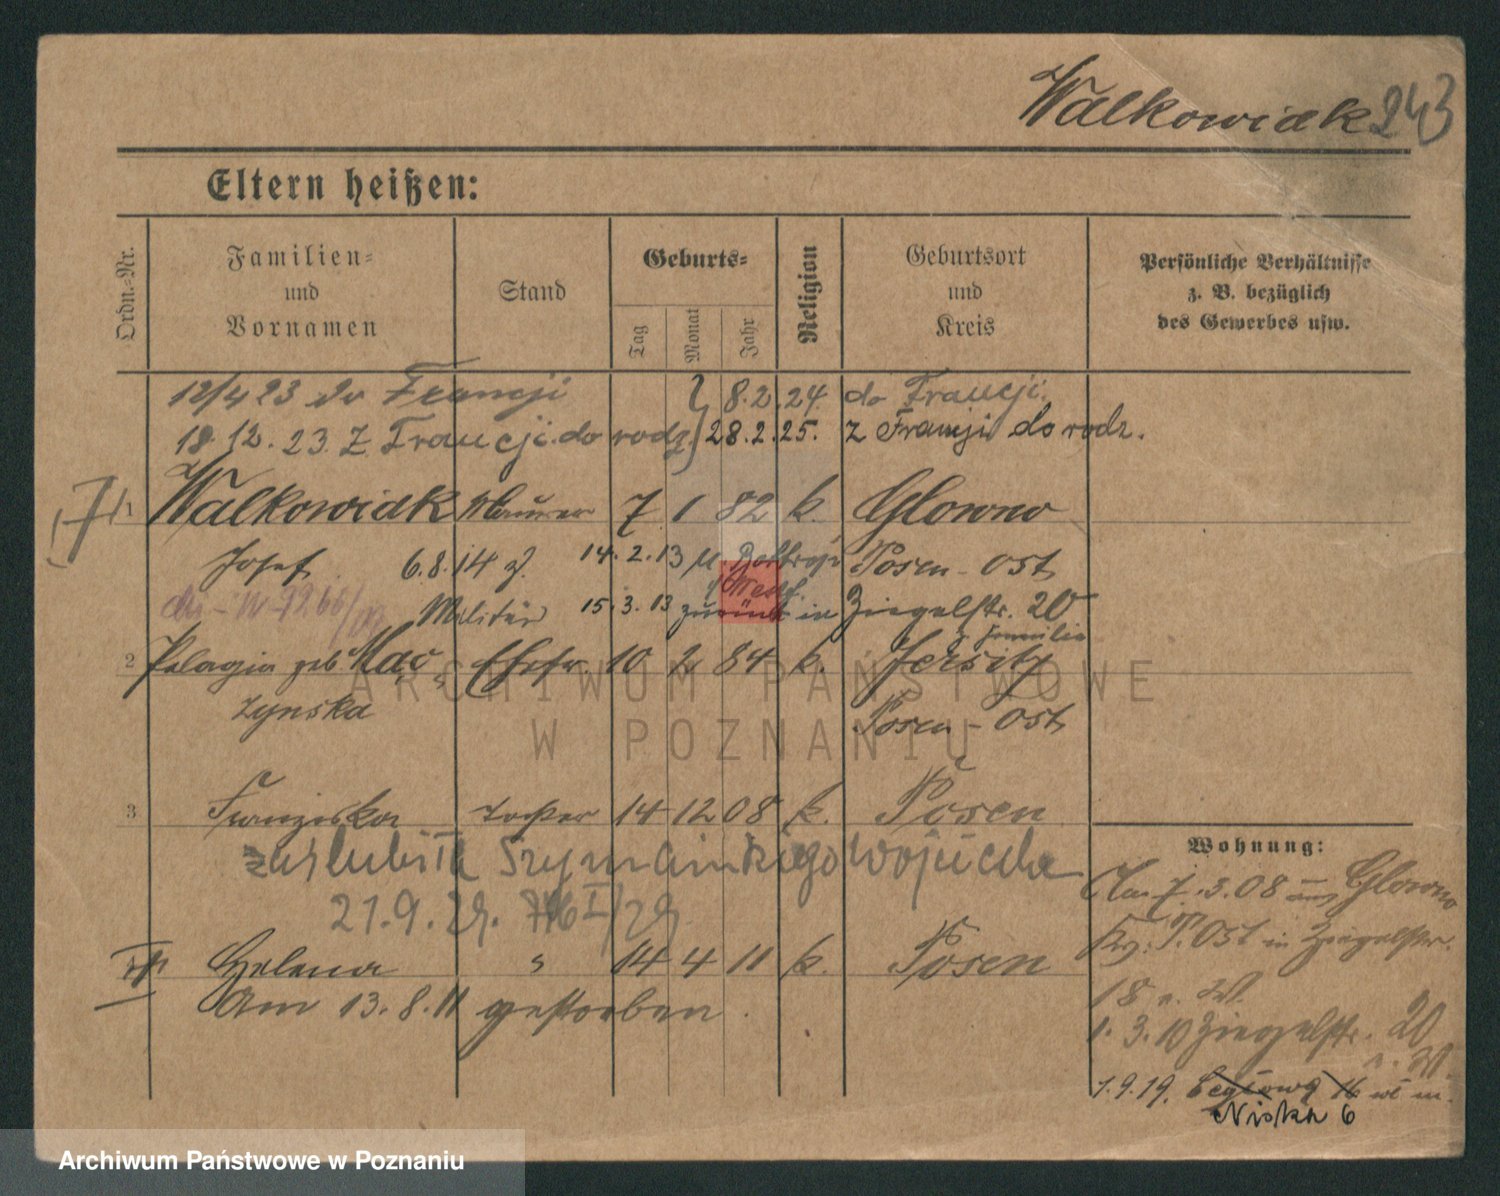 Walkowiak 243
Eltern heißen:
Ordn.-Nr.
Familien-
und
Vornamen
Stand
Geburts-
Tag
Monat
Jahr
Religion
Geburtsort
und
Kreis
Persönliche Verhältnisse
z. B. bezüglich
des Gewerbes usw.
12/4 23 do Francji 8.2.24. do Francji.
18.12.23. Z Francji do rodz. 28.2.25. z Francji do rodz.
1 Walkowiak Maurer 7 1 82 k. Glowno
Josef 6.8.14 z. 14.2.13 n Bottrop Posen-Ost
Westf.
Militär 15.3.13 zurück in Ziegelstr. 20
z. Familie
2 Pelagia geb. Mac- Ehefr. 10 2 84 k. Jersitz
zynska Posen-Ost
3 Franziska Tochter 14 12 08 k. Posen
zaślubiła Szymańskiego Wojciecha
21.9.29.
Helena " 14 4 11 k. Posen
Am 13.8.11 gestorben.
Wohnung:
Am 7.3.08 aus Glowno
Kr. P. Ost in Ziegelstr.
18 n. W.
1.3.10 Ziegelstr. 20
n. W.
1.9.19. Ceglowa 16 wł m.
Niska 6
ARCHIWUM PAŃSTWOWE
W POZNANIU
Archiwum Państwowe w Poznaniu